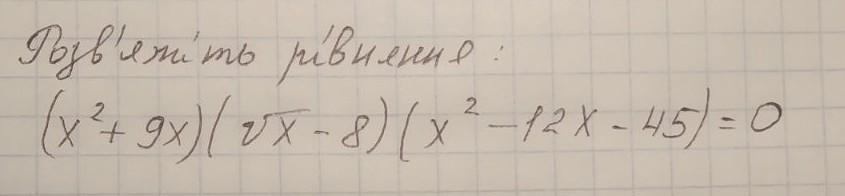 Розв'яжіть рівняння:
(x² + 9x)(√x - 8)(x² - 12x - 45) = 0